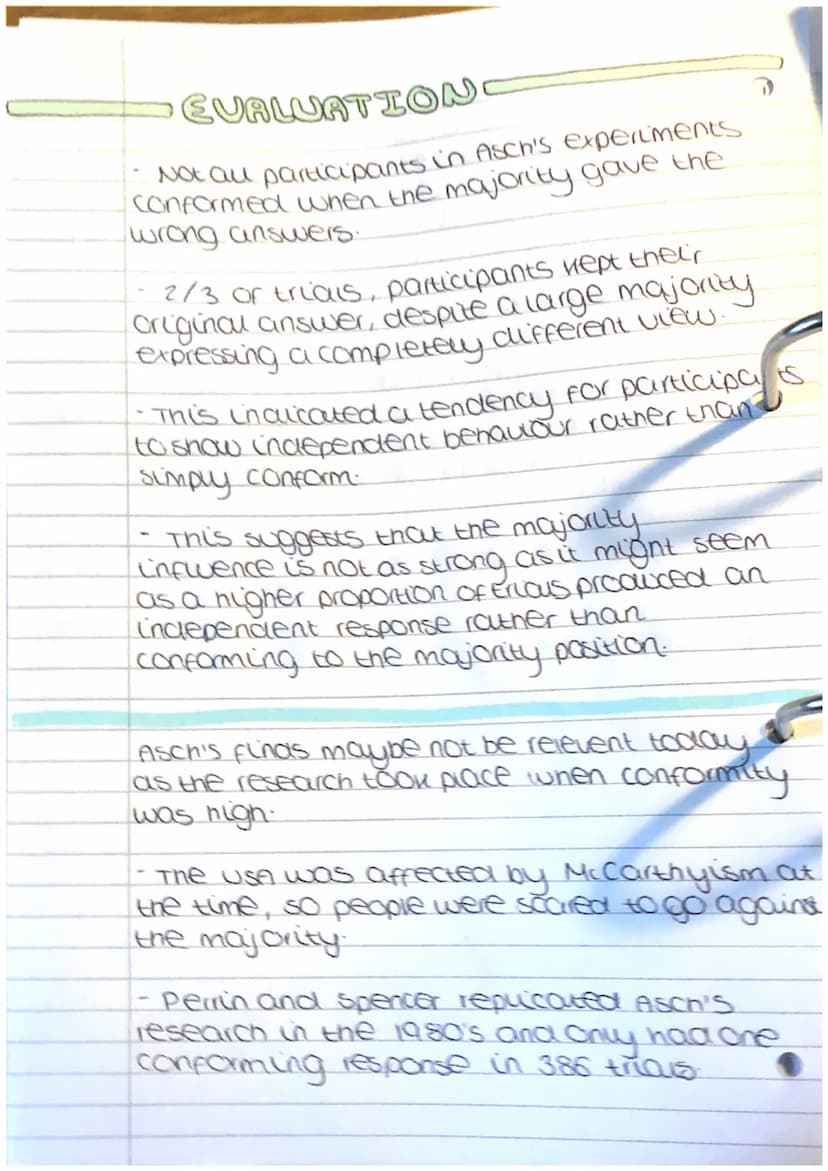 EVALUATION
- Not all participants in Asch's experiments
conformed when the majority gave the
wrong answers.
- 2/3 of trials, participants kept their
original answer, despite a large majority
expressing a completely different view.
- This indicated a tendency for participants
to show independent behaviour rather than
simply conform.
- This suggests that the majority
influence is not as strong as it might seem
as a higher proportion of trials produced an
independent response rather than
conforming to the majority position.
Asch's finds maybe not be relevent today
as the research took place when conformity
was high.
- The USA was affected by McCarthyism at
the time, so people were scared to go against
the majority.
- Perrin and Spencer replicated Asch's
research in the 1980's and only had one
conforming response in 386 trials